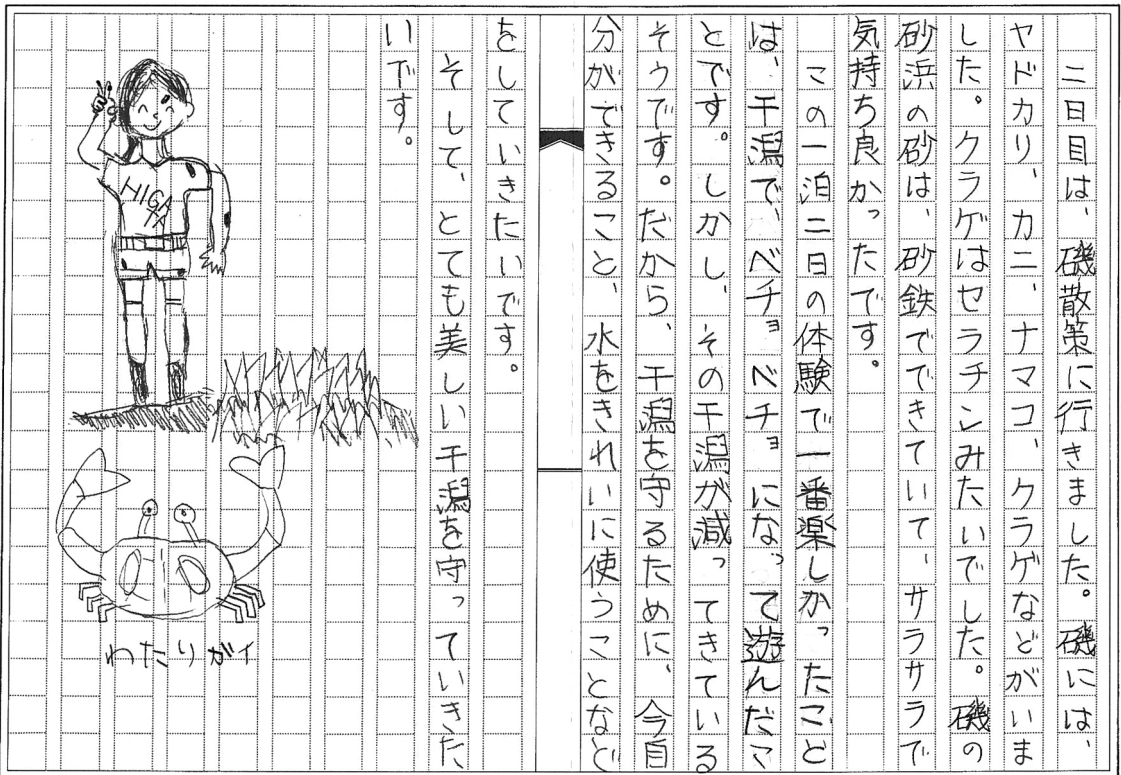 二日目は、磯散策に行きました。磯には、
ヤドカリ、カニ、ナマコ、クラゲなどがいま
した。クラゲはゼラチンみたいでした。磯の
砂浜の砂は、砂鉄でできていて、サラサラで
気持ち良かったです。
この一泊二日の体験で一番楽しかったこと
は、干潟で、ベチョベチョになって遊んだこ
とです。しかし、その干潟が減ってきている
そうです。だから、干潟を守るために、今自
分ができること、水をきれいに使うことなど
をしていきたいです。
そして、とても美しい干潟を守っていきた
いです。
HIGA
TA
わたりガイ